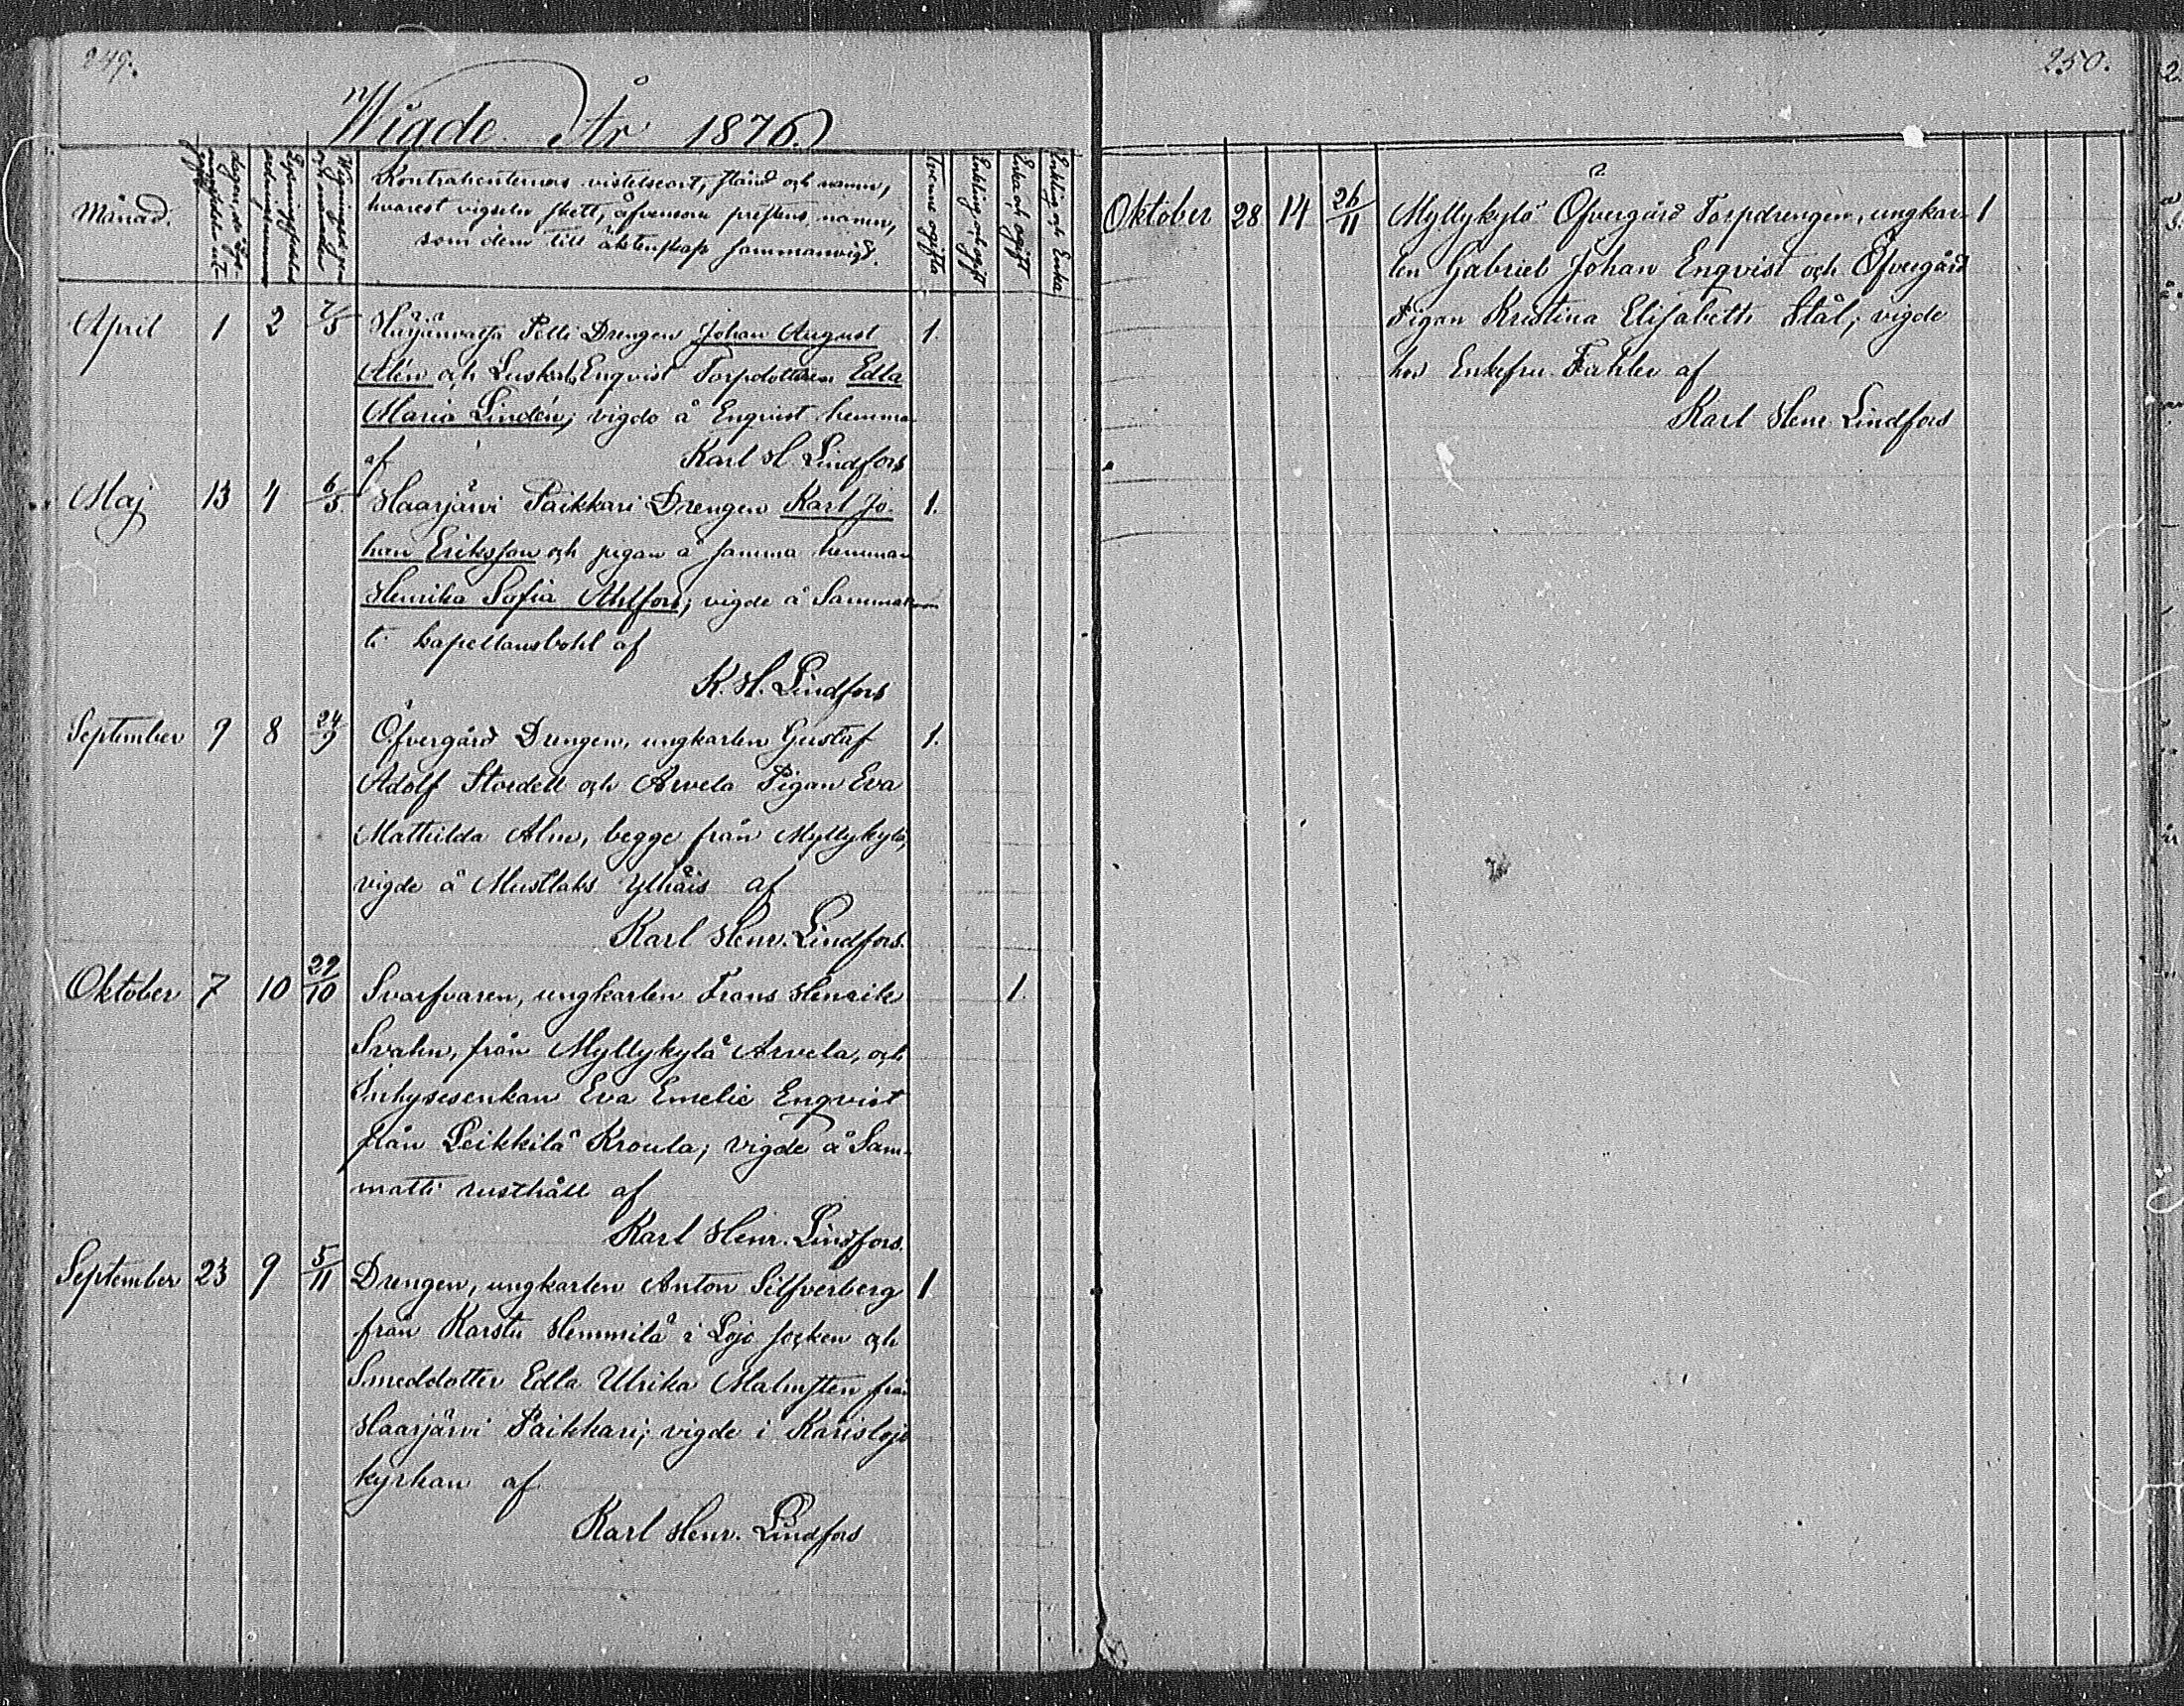 249.
Wigde År 1876.
Månad.
Kontrahenternas vistelseort, stånd och namn,
hvarest vigseln skett, äfvensom prestens namn,
som dem till äktenskap sammanvigt.
Tvenne ogifta
Enkling och ogift
Enka och ogift
Enkling och Enka
April 1 2 7/5 Härjänvatsa Pelli Drengen Johan August 1.
Alén och Luskala Enqvist Torpdottern Edla
Maria Lindén; vigde å Enqvist hemma
af Karl H. Lindfors
Maj 13 4 6/5. Haarjärvi Paikkari Drengen Karl Jo- 1.
han Eriksson och pigan å samma hemman
Henrika Sofia Ahlfors; vigde å Samma
ti kapellansbohl af
K. H. Lindfors
September 9 8 24/9 Öfvergård Drengen, ungkarlen Gustaf 1.
Adolf Stordell och Arvela Pigan Eva
Mathilda Alm, begge från Myllykylä,
vigde å Mustlaks Ylhäis af
Karl Henr. Lindfors.
Oktober 7 10 29/10 Svarfvaren, ungkarlen Frans Henrik 1.
Svahn, från Myllykylä Arvela, och
Inhysesenkan Eva Emelie Enqvist
från Leikkilä Kroula; vigde å Sam-
matti rusthåll af
Karl Henr. Lindfors.
September 23 9 5/11 Drengen, ungkarlen Anton Silfverberg 1
från Karstu Hemmilä i Lojo socken och
Smeddotter Edla Ulrika Malmsten från
Haarjärvi Paikkari; vigde i Karislojo
kyrkan af
Karl Henr. Lindfors
250.
Oktober 28 14 26/11 Myllykylä Öfvergård Torpdrengen, ungkar- 1
len Gabriel Johan Enqvist och Öfvergård
Pigan Kristina Elisabeth Stål; vigde
hos Enkefru Fahler af
Karl Henr Lindfors